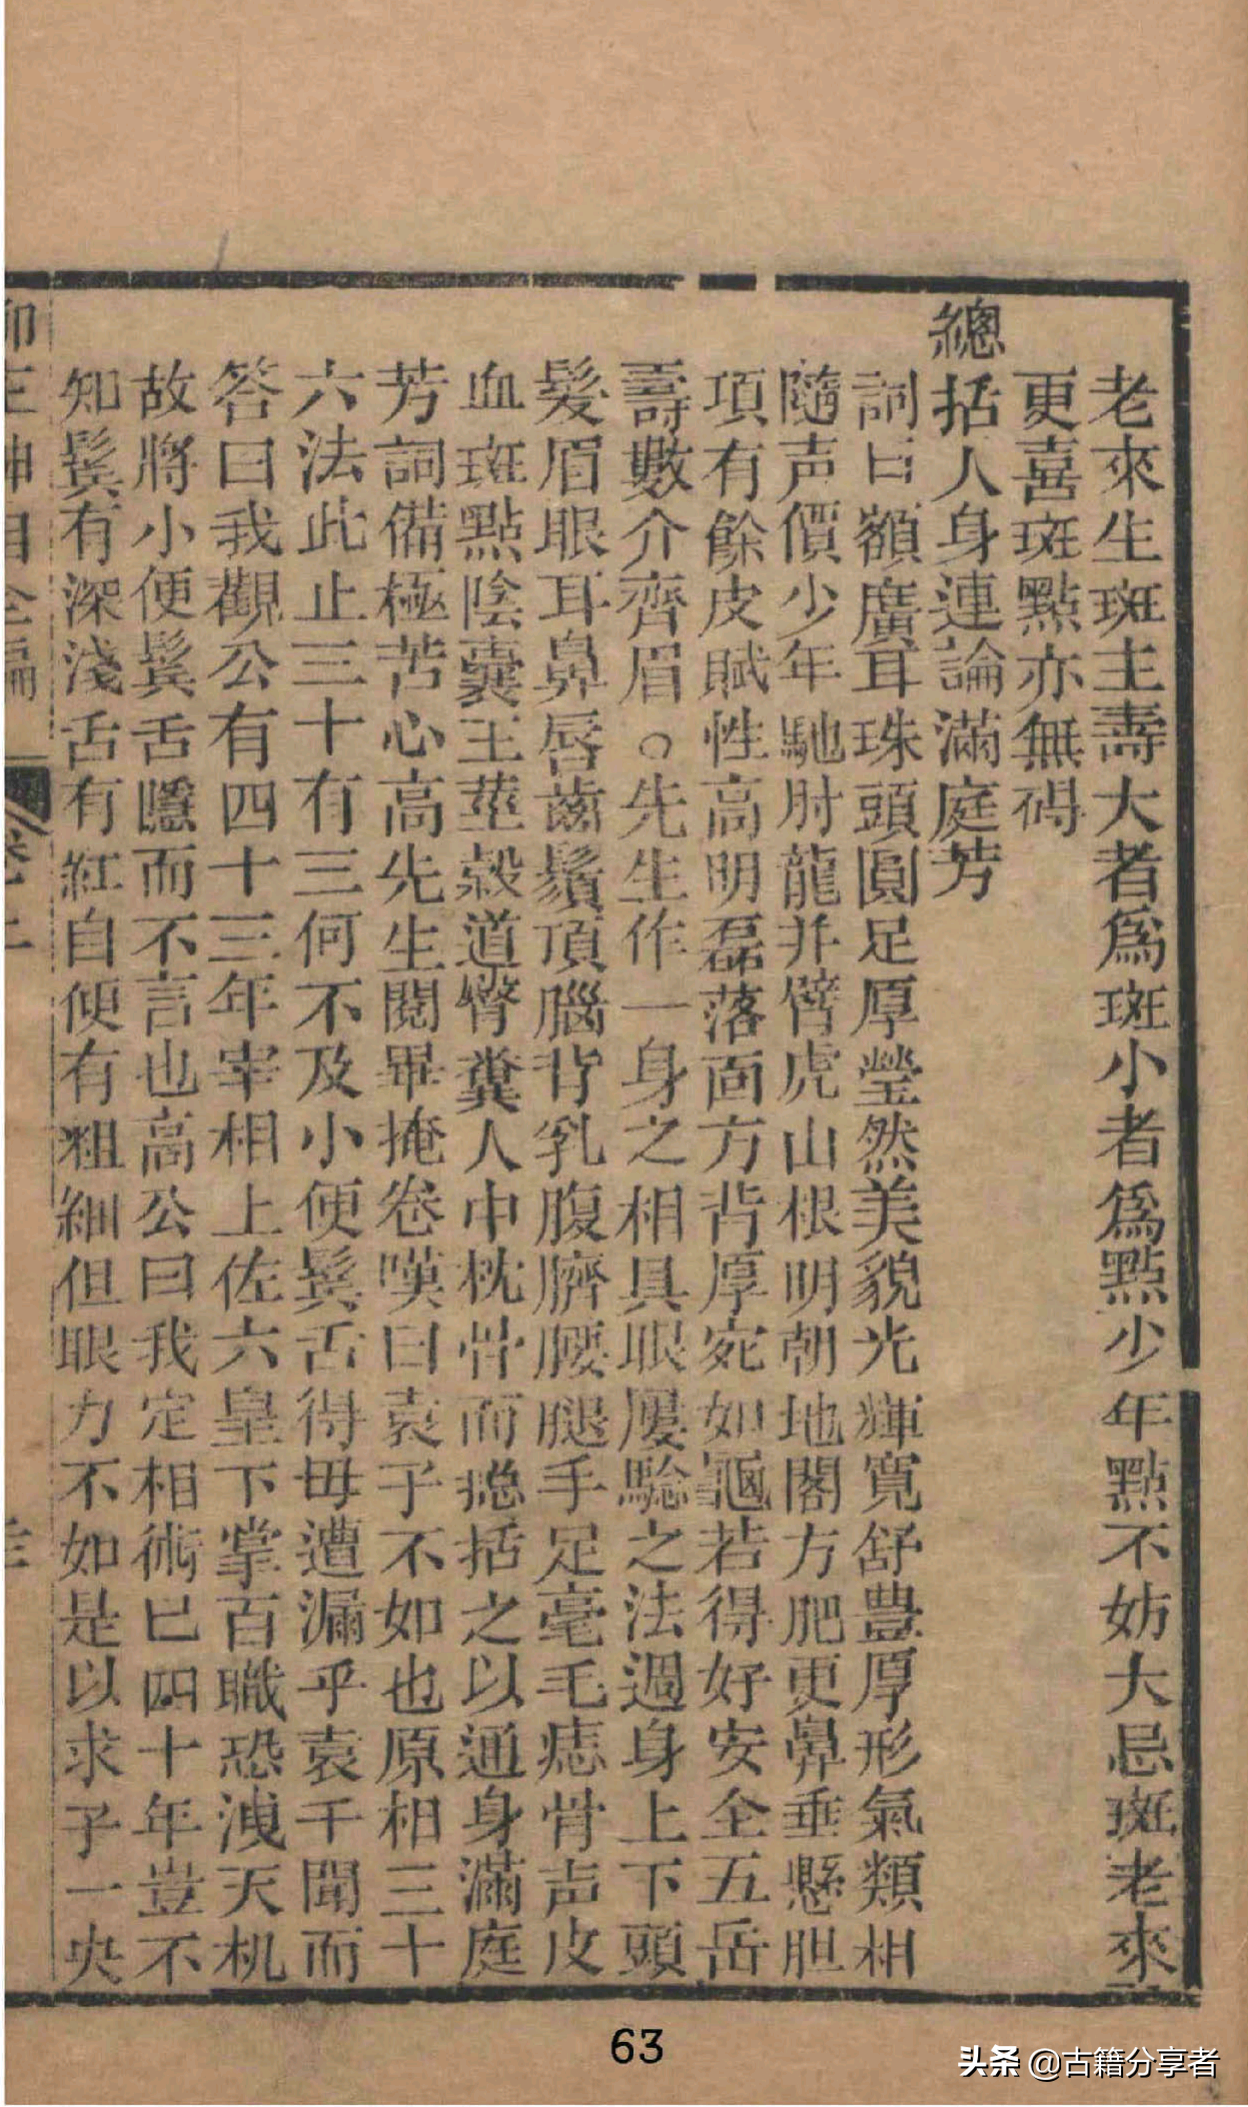 老來生斑主壽大者爲斑小者爲點少年點不妨大忌斑老來
更喜斑點亦無碍
總括人身連論滿庭芳
詞曰額廣耳珠頭圓足厚瑩然美貌光輝寬舒豊厚形氣類相
隨声價少年馳肘龍并臂虎山根明朝地閣方肥更鼻垂懸胆
項有餘皮賦性高明磊落面方背厚宛如龜若得好安全五岳
壽數介齊眉○先生作一身之相具眼屢騐之法週身上下頭
髮眉眼耳鼻唇齒鬚頂腦背乳腹臍腰腿手足毫毛痣骨声皮
血斑點陰囊玉莖穀道臀糞人中枕骨而揔括之以通身滿庭
芳詞備極苦心高先生閱畢掩卷嘆曰袁子不如也原相三十
六法此止三十有三何不及小便鬂舌得毋遭漏乎袁干聞而
答曰我觀公有四十三年宰相上佐六皇下掌百職恐洩天机
故將小便鬂舌隱而不言也高公曰我定相術已四十年豈不
知鬂有深淺舌有紅自便有粗細但眼力不如是以求子一央
63
头条 @古籍分享者